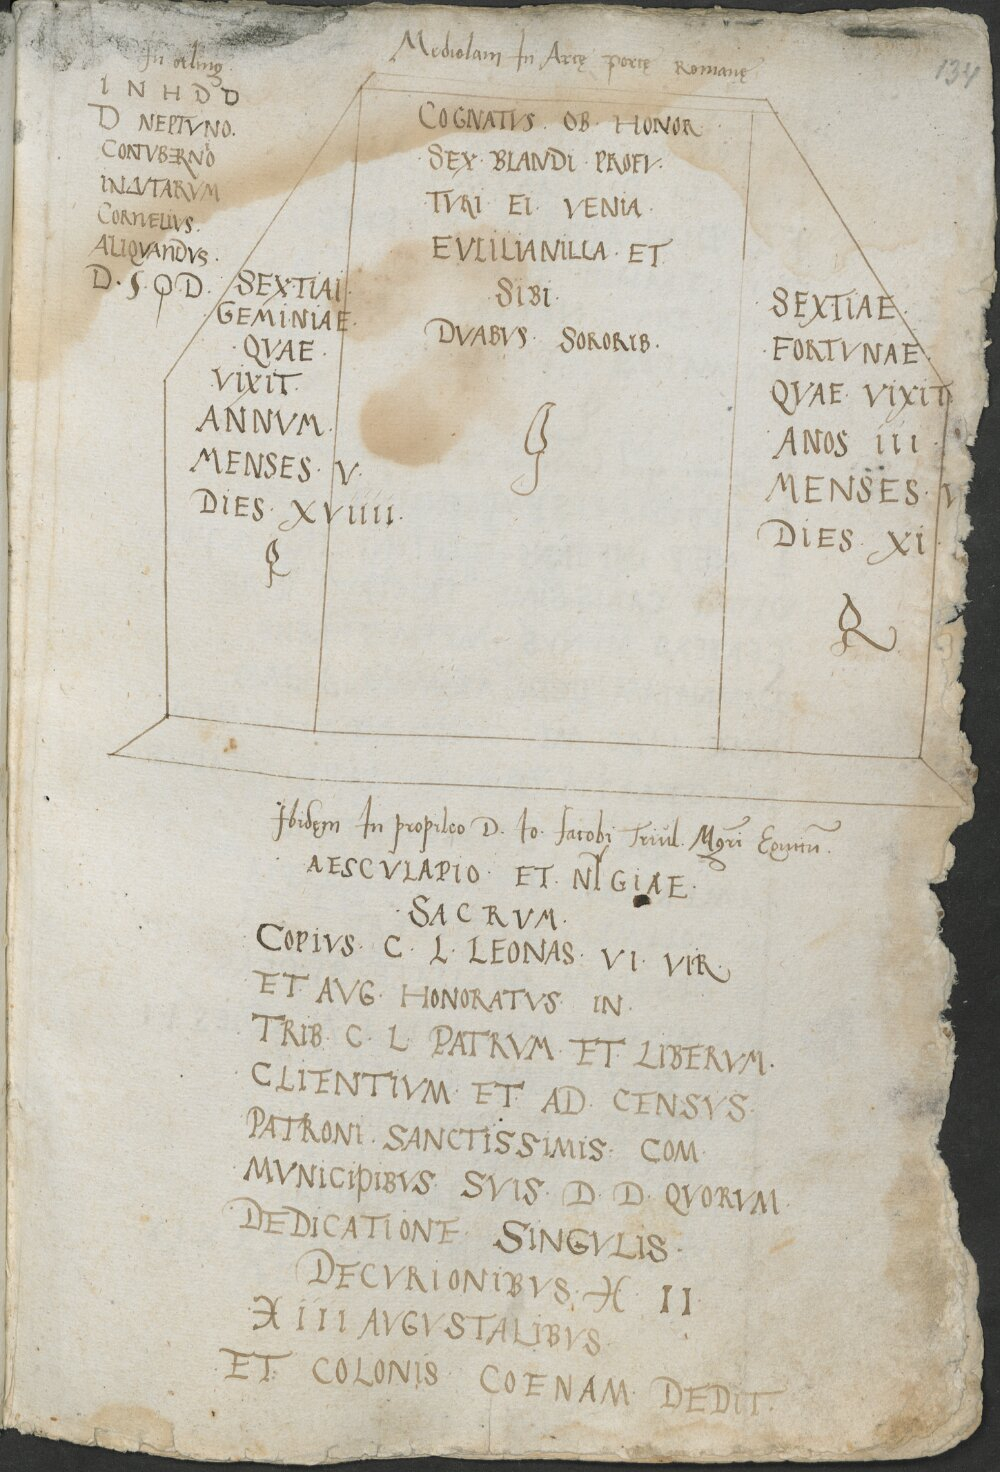 134
Mediolani In Arce porte Romane
I N H D D
D NEPTVNO.
CONTVBERNO
CORNELIVS.
ALIQVANDVS.
D. S. Q D.
COGNATVS. OB HONOR
SEX BLANDI PROFV.
TVRI EI VENIA
EVLILIANILLA ET
SIBI.
DVABVS SORORIB.
SEXTIAI.
GEMINIAE.
QVAE.
VIXIT.
ANNVM.
MENSES. V.
DIES. XVIIII.
SEXTIAE.
FORTVNAE.
QVAE VIXIT
ANOS III.
MENSES. V
DIES. XI
Ibidem In propileo D. Io. Iacobi Triul.
AESCVLAPIO ET GIAE.
SACRVM.
COPIVS C. L. LEONAS VI VIR
ET AVG. HONORATVS IN.
TRIB. C. L. PATRVM ET LIBERVM.
CLIENTIVM ET AD CENSVS
PATRONI. SANCTISSIMIS COM
MVNICIPIBVS SVIS D. D. QVORVM
DEDICATIONE SINGVLIS.
DECVRIONIBVS. II
III AVGVSTALIBVS
ET COLONIS COENAM DEDIT.